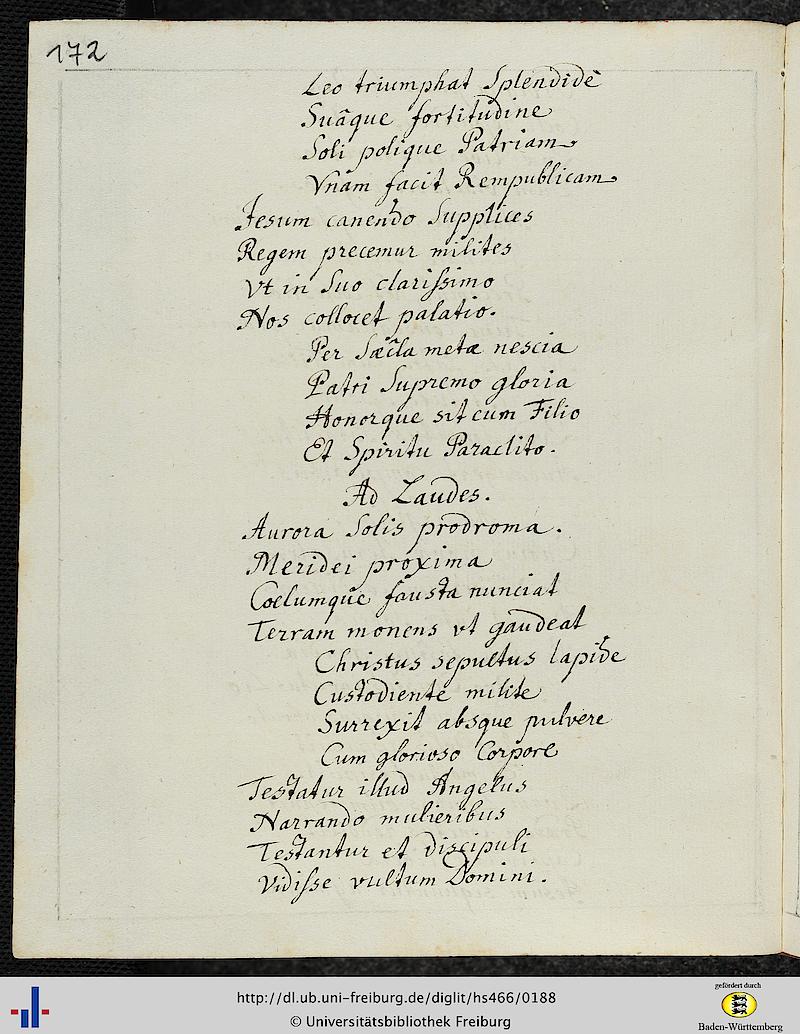 172
Leo triumphat Splendidè
Suâque fortitudine
Soli polique Patriam
Vnam facit Rempublicam
Jesum canendo Supplices
Regem precemur milites
Vt in Suo clarissimo
Nos collocet palatio.
Per Sæcla metæ nescia
Patri Supremo gloria
Honorque sit cum Filio
Et Spiritu Paraclito.
Ad Laudes.
Aurora Solis prodroma.
Meridei proxima
Coelumque fausta nunciat
Terram monens vt gaudeat
Christus sepultus lapide
Custodiente milite
Surrexit absque pulvere
Cum glorioso Corpore
Testatur illud Angelus
Narrando mulieribus
Testantur et discipuli
Vidisse vultum Domini.
http://dl.ub.uni-freiburg.de/diglit/hs466/0188
© Universitätsbibliothek Freiburg
gefördert durch
Baden-Württemberg